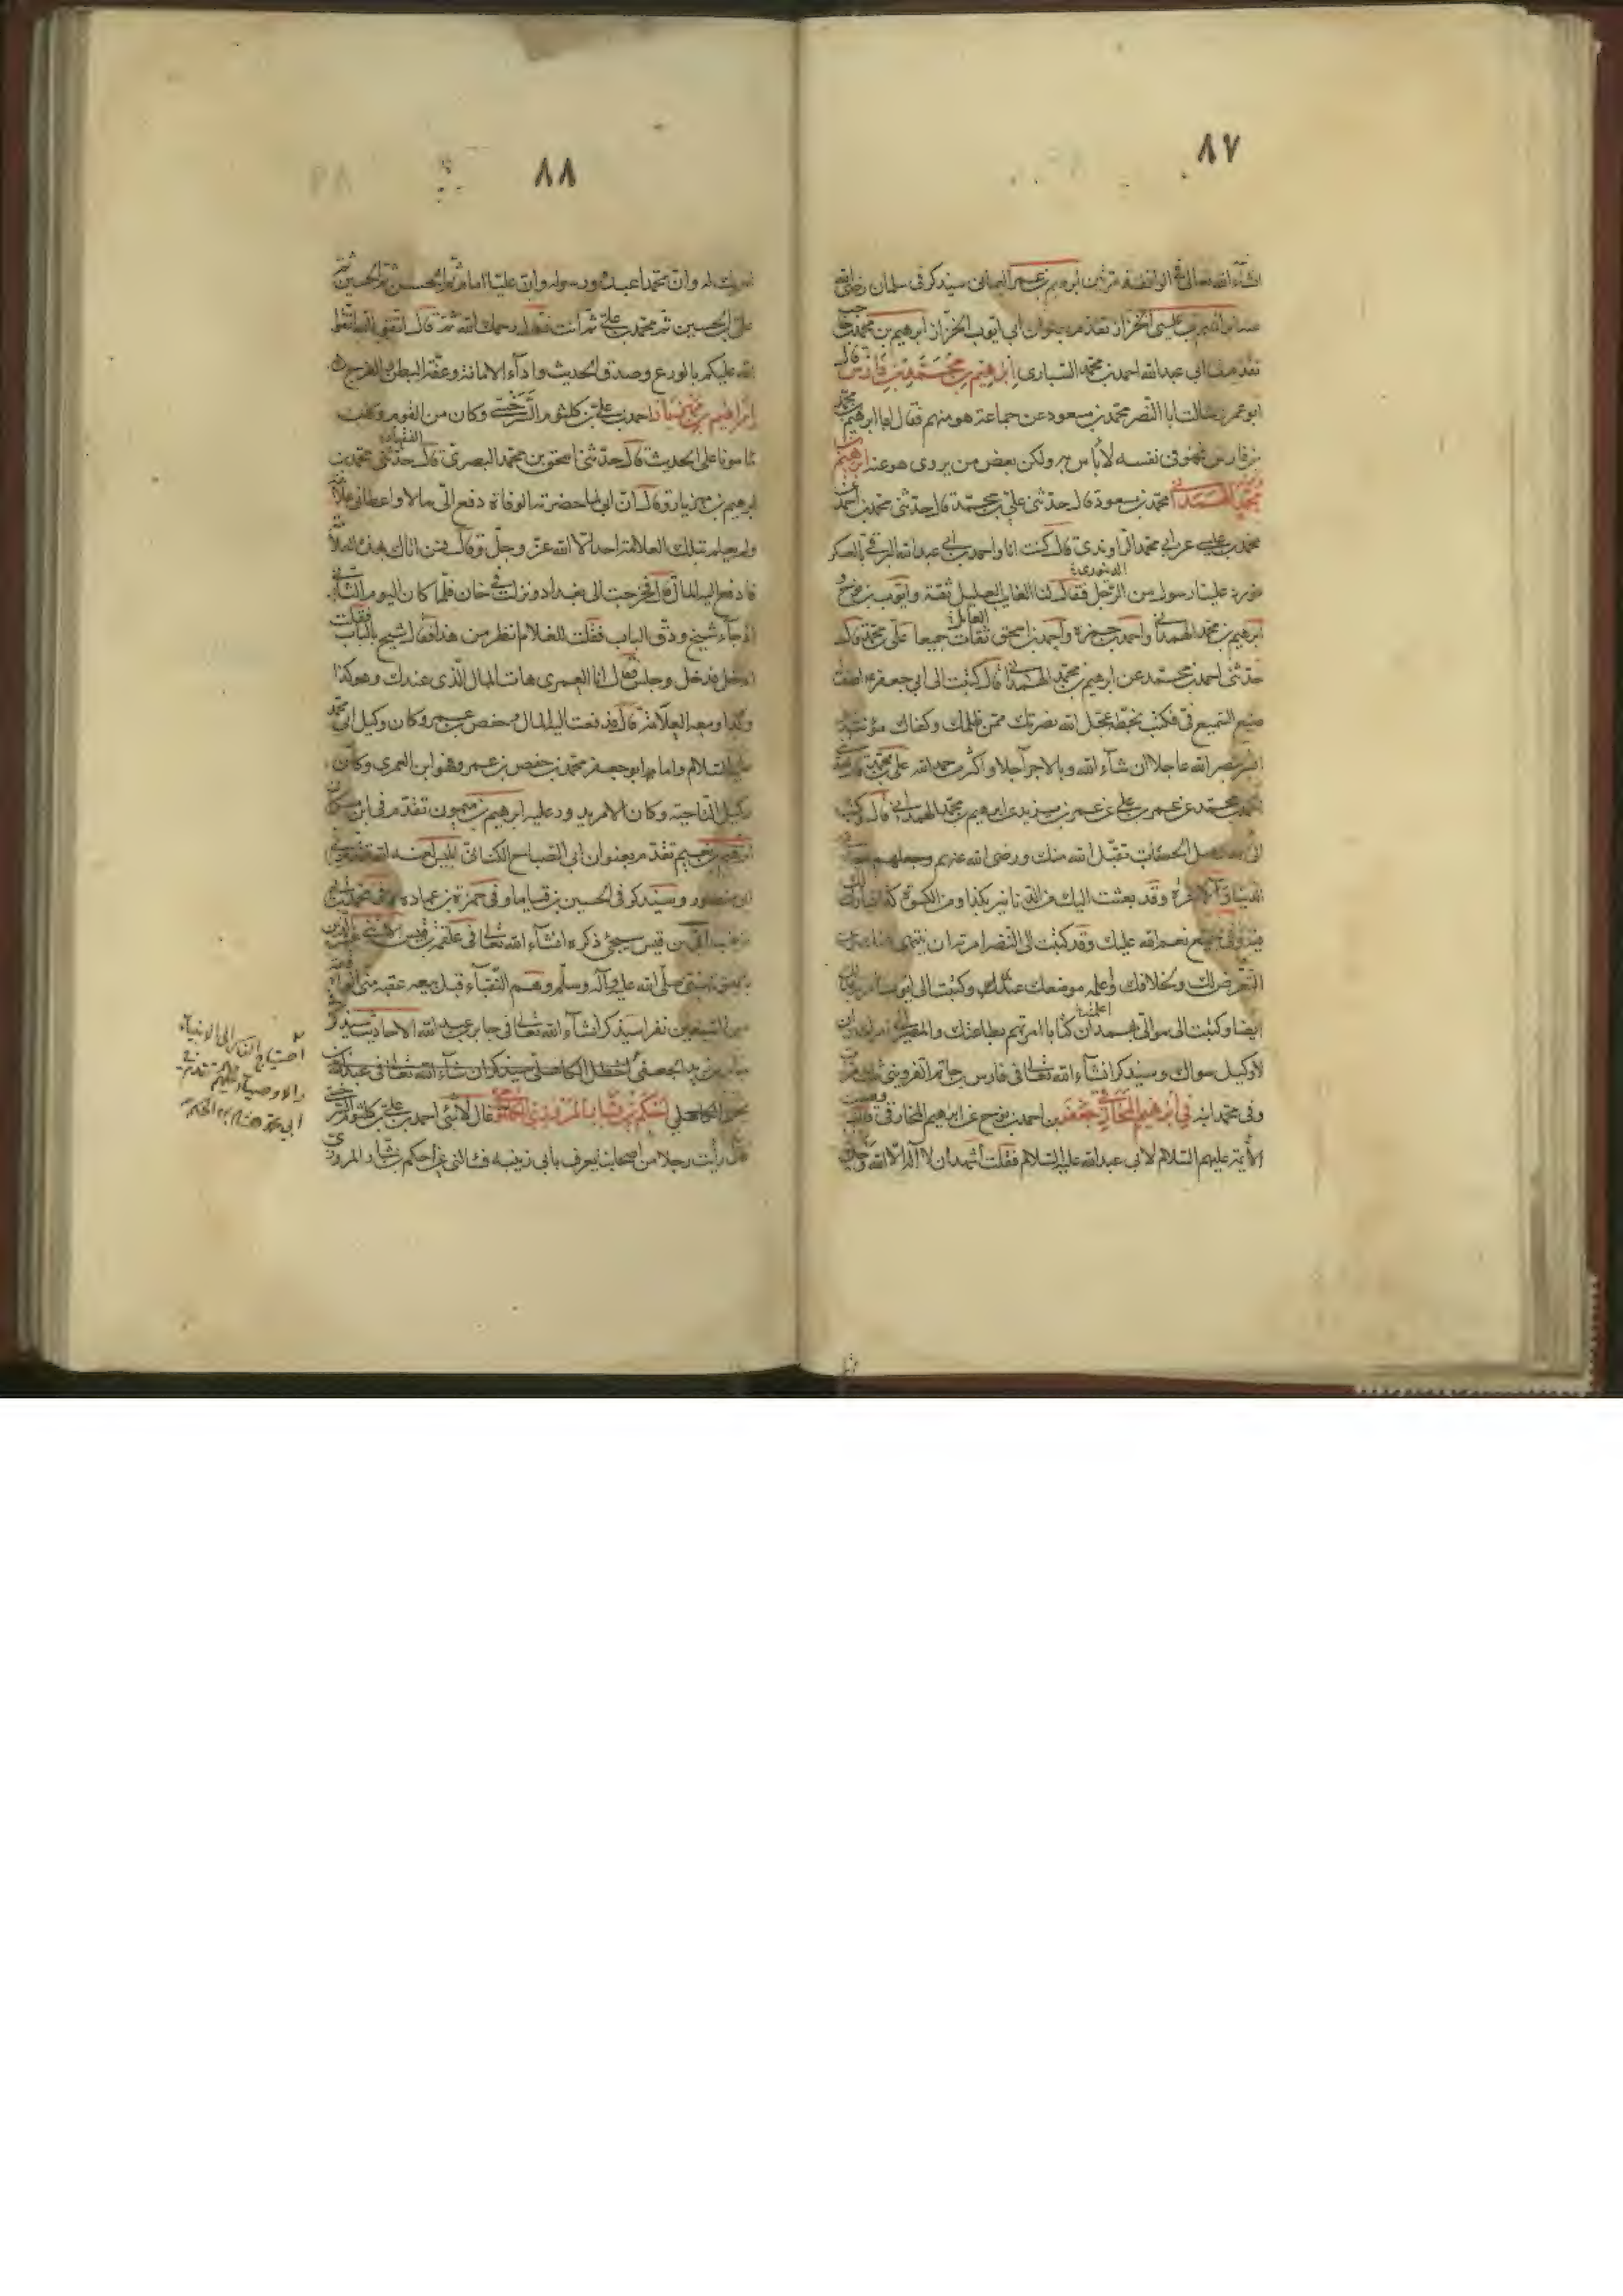 ٨٧
انشاء الله تعالى في الواقفة ابرهيم بن عمر اليماني سيذكر في سلمان رضي الله
عنه ابرهيم بن عيسى الخزاز تقدم بعنوان ابي ايوب الخزاز ابرهيم بن محمد بن
تقدم في ابي عبدالله احمد بن محمد السياري ابرهيم بن محمد بن فارس قال
ابو عمرو سالت ابا النضر محمد بن مسعود عن جماعة هو منهم فقال اما ابرهيم بن محمد
بن فارس فهو في نفسه لا بأس به ولكن بعض من يروى هو عنه ابرهيم بن
محمد الهمداني محمد بن مسعود قال حدثنى علي بن محمد قال حدثنى محمد بن احمد عن
محمد بن عيسى عن ابي محمد الرازي قال كنت انا واحمد بن ابي عبدالله البرقي بالعسكر
فورد علينا رسول من الرجل فقال لنا الغايب العليل ثقة وايوب بن نوح و
ابرهيم بن محمد الهمداني واحمد بن حمزة واحمد بن اسحق ثقات جميعا علي بن محمد قال
حدثنى احمد بن محمد عن ابرهيم بن محمد الهمداني قال كتبت الى ابي جعفر اصف
صنيع السميع في فكتب بخطه عجل الله نصرتك ممن ظلمك وكفاك مؤنته
ابشر بنصر الله عاجلا ان شاء الله وبالاجر آجلا واكثر من حمد الله علي بن محمد قال حدثني
احمد بن محمد عن عمر بن علي بن عمر بن يزيد عن ابرهيم بن محمد الهمداني قال وكتب
الى قد وصل الحساب تقبل الله منك ورضى الله عنهم وجعلهم معنا في
الدنيا والآخرة وقد بعثت اليك من الدنانير بكذا ومن الكسوة كذا فبارك لك
فيه وفي جميع نعم الله عليك وقد كتبت الى النضر امرته ان ينتهى عنك وعن
التعرض لك ولخلافك واعلمته موضعك عندي وكتبت الى ايوب امرته بذلك
ايضا وكتبت الى موالي بهمدان كتابا امرتهم بطاعتك والمصير الى امرك وان
لا وكيل سواك وسيذكر انشاء الله تعالى في فارس بن حاتم القزويني
وفى محمد ابنه في ابرهيم المخارقي جعفر بن احمد بن نوح عن ابرهيم المخارقي قال وصفت
الأئمة عليهم السلام لابي عبد الله عليه السلام فقلت اشهد ان لا اله الا الله وحده لا
٨٨
شريك له وان محمدا عبده ورسوله وان عليا امام ثم الحسن ثم الحسين ثم
علي بن الحسين ثم محمد بن علي ثم انت فقال رحمك الله ثم قال اتقوا الله اتقوا
الله عليكم بالورع وصدق الحديث واداء الامانة وعفة البطن والفرج
ابراهيم بن مهزيار احمد بن علي بن كلثوم السرخسي وكان من القوم وكان
مأمونا على الحديث قال حدثنى اسحق بن محمد البصري قال حدثنى محمد بن
ابرهيم بن مهزيار وقال ان ابي لما حضرته الوفاة دفع الى مالا واعطانى علامة
ولم يعلم بتلك العلامة احد الا الله عز وجل وقال من اتاك بهذه العلامة
فادفع اليه المال قال فخرجت الى بغداد ونزلت في خان فلما كان اليوم الثاني
اذ جاء شيخ ودق الباب فقلت للغلام انظر من هذا فقال شيخ بالباب فقلت
ادخل فدخل وجلس فقال انا العمري هات المال الذي عندك وهو كذا
وكذا ومعه العلامة قال فدفعت اليه المال وحفص بن عمرو كان وكيل ابي محمد
عليه السلام واما ابو جعفر محمد بن حفص بن عمر فهو ابن العمري وكان
وكيل الناحية وكان الامر يدور عليه ابرهيم بن ميمون تقدم في ابن مسكان
ابرهيم بن نعيم تقدم بعنوان ابي الصباح الكناني ابليس لعنه الله تقدم في
ابي منصور وسيذكر في الحسين بن قياما وفي حمزة بن عماره
بن قيس سيجئ ذكره انشاء الله تعالى في علقمة بن قيس
صلى الله عليه وآله وسلم وقسم النقباء
من السبعين نفرا سيذكر انشاء الله تعالى في جابر بن عبد الله الاحاديث سيذكر
جابر بن يزيد الجعفي اخطل الكاهلي سيذكر ان شاء الله تعالى في عبد الله بن
يحيى الكاهلي احكم بن بشار المروزي الكلثومي قال لانئى احمد بن علي بن كلثوم السرخسي
قال رأيت رجلا من اصحابنا يعرف بابي زينبه فسالني عن احكم بن بشار المروزي
احتياج الناس الى الانبياء
والاوصياء عليهم تقدم في
ابي محمد هشام بن الحكم